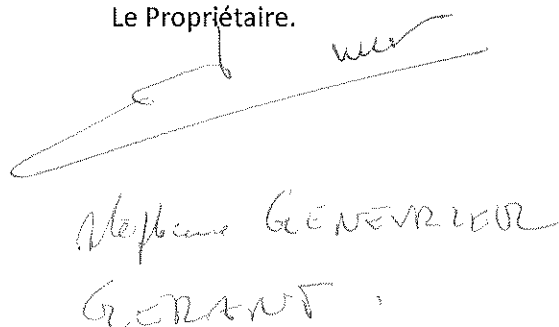 Le Propriétaire.
Stéphane GENEVRIER
GERANT.